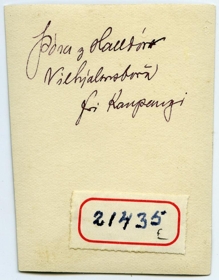 Þóra og Halldóra
Vilhjálmsbörn
frá Kaupangi
21435
E